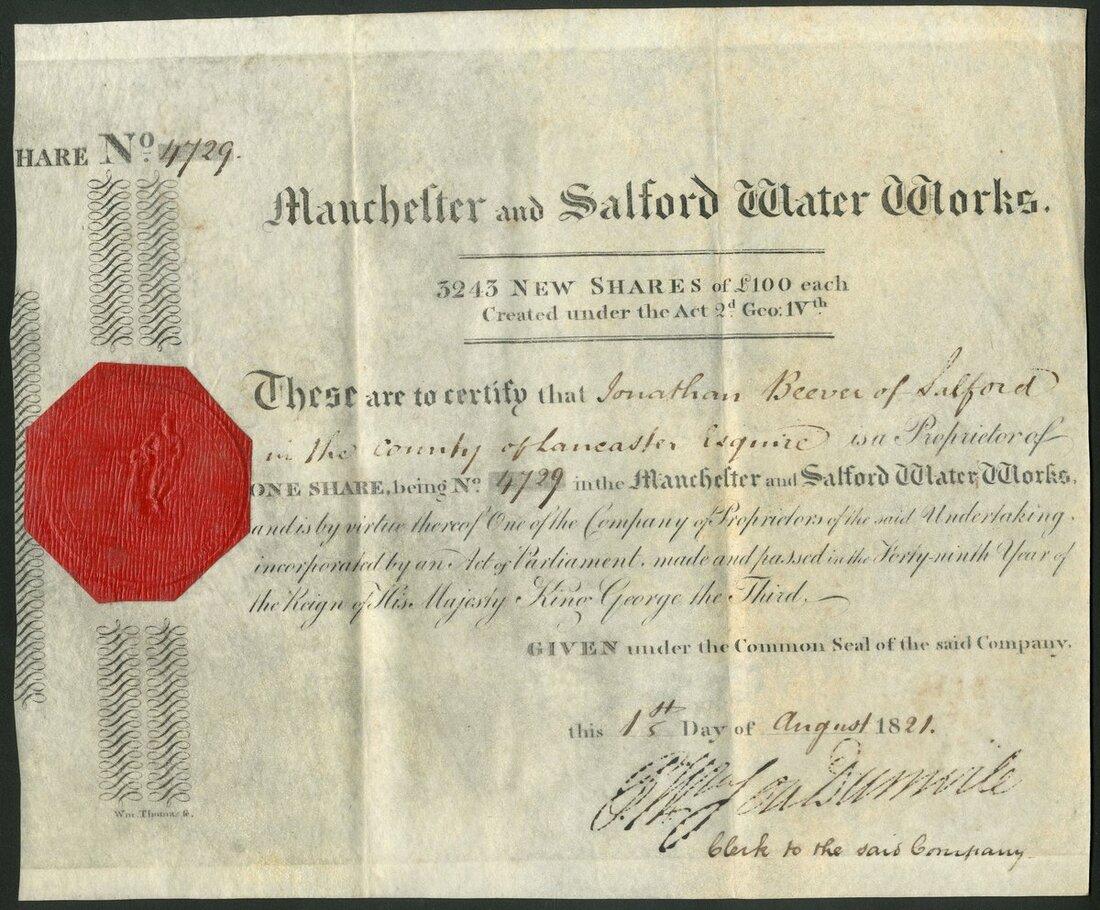 HARE No. 4729.
Manchester and Salford Water Works.
3243 NEW SHARES of £100 each
Created under the Act 2d. Geo: IVth.
These are to certify that Jonathan Beever of Salford
in the county of Lancaster Esquire is a Proprietor of
ONE SHARE, being No. 4729 in the Manchester and Salford Water Works,
and is by virtue thereof One of the Company of Proprietors of the said Undertaking,
incorporated by an Act of Parliament, made and passed in the Forty-ninth Year of
the Reign of His Majesty King George the Third.
GIVEN under the Common Seal of the said Company,
this 1st Day of August 1821.
Dumvile
Clerk to the said Company
Wm. Thomas sc.